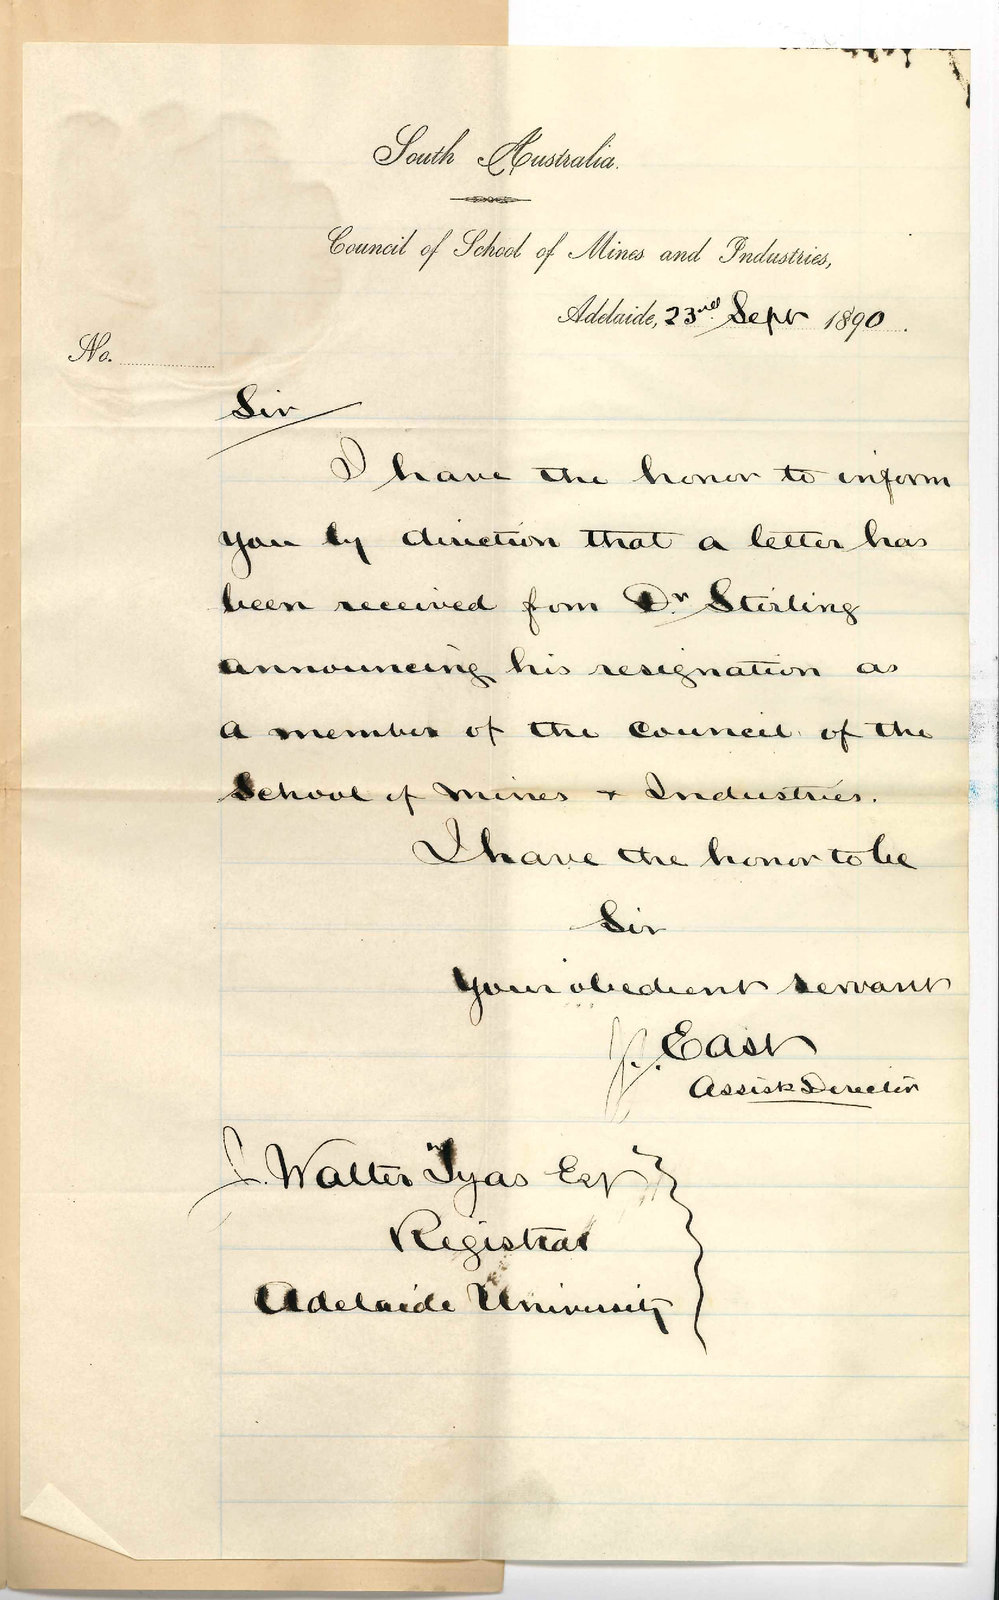 South Australia.
Council of School of Mines and Industries,
Adelaide, 23rd Sept 1890.
No.
Sir
I have the honor to inform
you by direction that a letter has
been received from Dr. Stirling
announcing his resignation as
a member of the Council of the
School of Mines & Industries.
I have the honor to be
Sir
Your obedient servant
J. J. East
Assist Director
J. Walter Tyas Esq
Registrar
Adelaide University